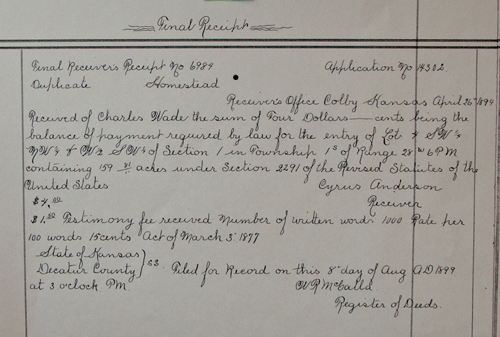 Final Receipt
Final Receiver's Receipt No 6989 Application No 14302
Duplicate Homestead
Receiver's Office Colby Kansas April 26" 1894
Received of Charles Wade the sum of Four Dollars — cents being the
balance of payment required by law for the entry of Lot 4 SW¼
NW¼ & W½ SW¼ of Section 1 in Township 1 S of Range 28 W 6 PM
containing 159 acres under Section 2291 of the Revised Statutes of the
United States Cyrus Anderson
$4.00 Receiver
$1.50 Testimony fee received Number of written words 1000 Rate per
100 words 15 cents Act of March 3" 1877
State of Kansas }
Decatur County } SS. Filed for Record on this 8" day of Aug A D 1899
at 3 o'clock PM. McCalla
Register of Deeds.